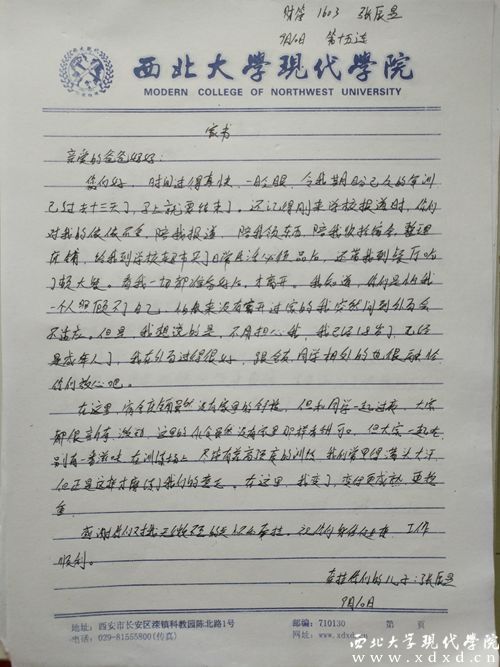 财管1603 张辰昱
9月10日 第十五连
西北大学现代学院
MODERN COLLEGE OF NORTHWEST UNIVERSITY
家书
亲爱的爸爸妈妈:
您们好,时间过得真快,一眨眼,令我期盼已久的军训
已过去十三天了,马上就要结束了。还记得刚来学校报道时,你们
对我的依依不舍,陪我报道,陪我领东西,陪我收拾宿舍,整理
床铺,给我到学校超市买了日常生活必须品后,还带我到餐厅吃
了顿大餐。看我一切都准备好后,才离开。我知道,你们是怕我
一个人照顾不了自己,怕从来没有离开过家的我突然间到外面会
不适应。但是,我想说的是,不用担心我,我已经18岁了,已经
是成年人了,我在外面过得很好,跟舍友同学相处的也很融洽
你们放心吧。
在这里,宿舍床铺虽然没有家里的舒服,但和同学一起过夜,大家
都很高兴激动,这里的伙食虽然没有家里那样香甜可口,但大家一起吃
别有一番滋味,在训练场上,尽管有着高强度的训练,我们常累得满头大汗
但正是这样才磨练了我们的意志。在这里,我变了,变得更成熟,更稳
重。
感谢你们对我无微不至的
祝你们身体健康,工作
顺利。
你们的儿子:张辰昱
9月10日
地址:西安市长安区滦镇科教园陈北路1号
邮编:710130
第 页
电话:029-81555800(传真)
网址:www.xdxd.cn
西北大学现代学院
www.xdxd.cn